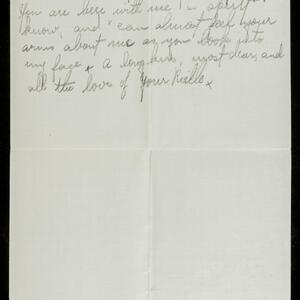 You are here with me in spirit I
know, and I can almost feel your
arms about me as you look into
my face x A long kiss, most dear, and
all the love of your Rielle x